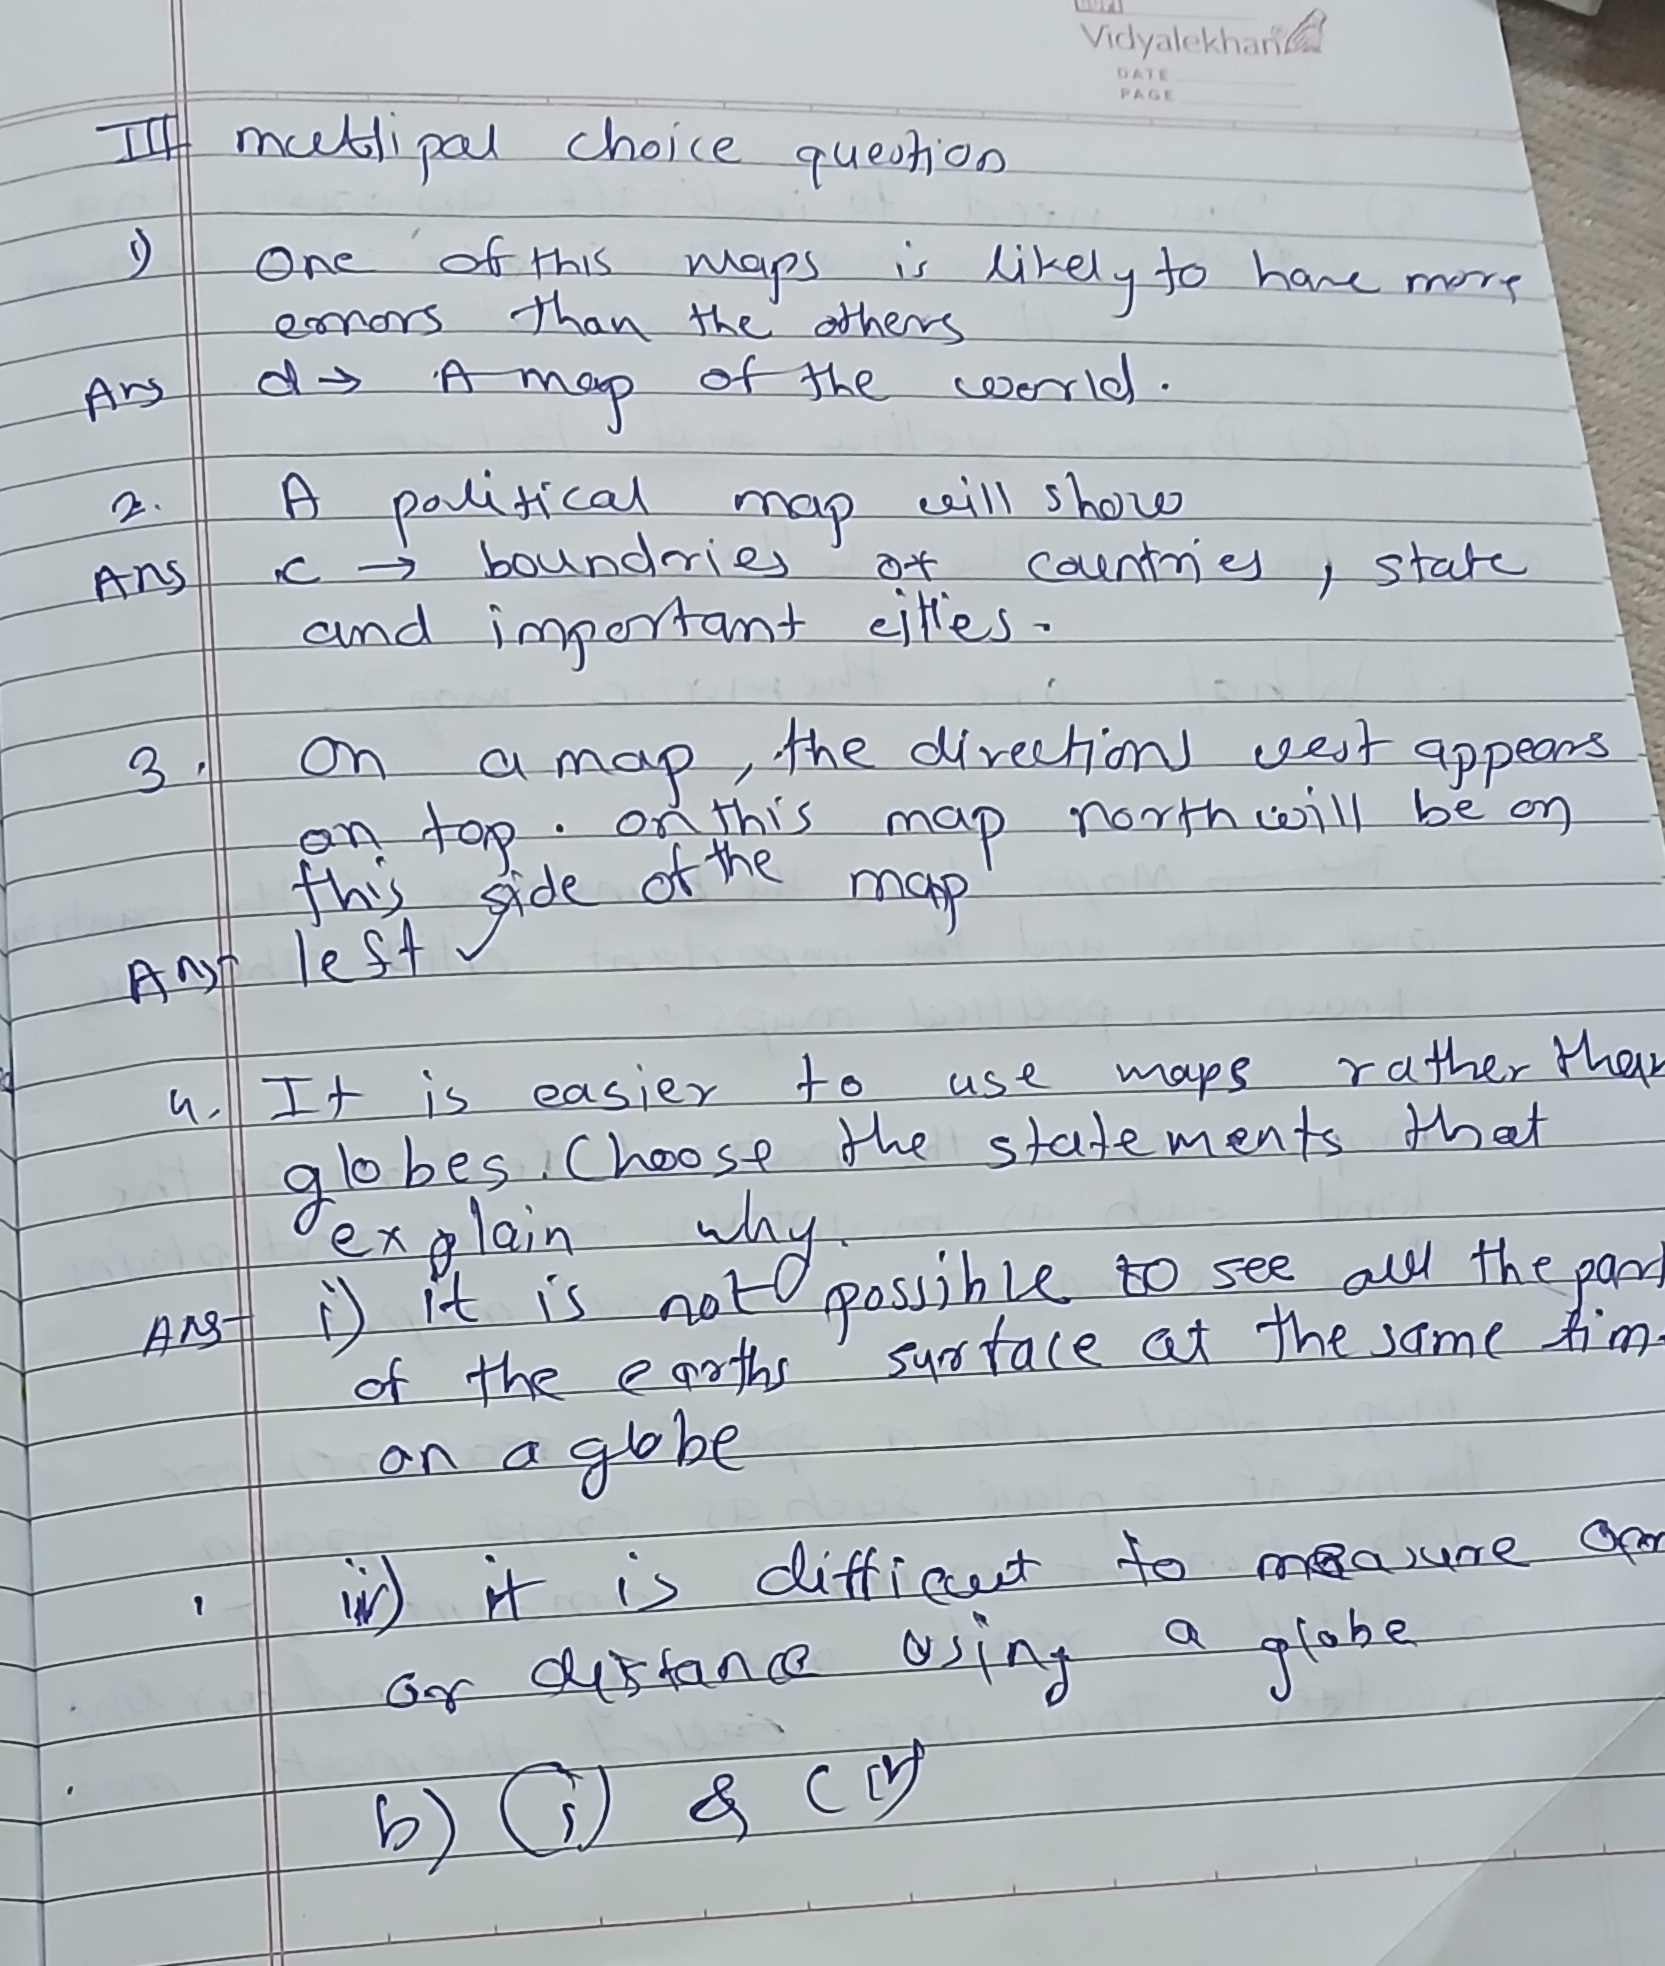 Vidyalekhan
DATE
PAGE
III mutlipal choice question
1) One of this maps is likely to have more
errors than the others
Ans d → A map of the world.
2. A political map will show
Ans c → boundries of countries, state
and important cities.
3. On a map, the directions west appears
on top. on this map north will be on
this side of the map
Ans left ✓
4. It is easier to use maps rather than
globes. Choose the statements that
explain why.
Ans i) it is not possible to see all the part
of the earths surface at the same tim
on a globe
iv) it is difficut to measure
or distance using a globe
b) (i) & (iv)